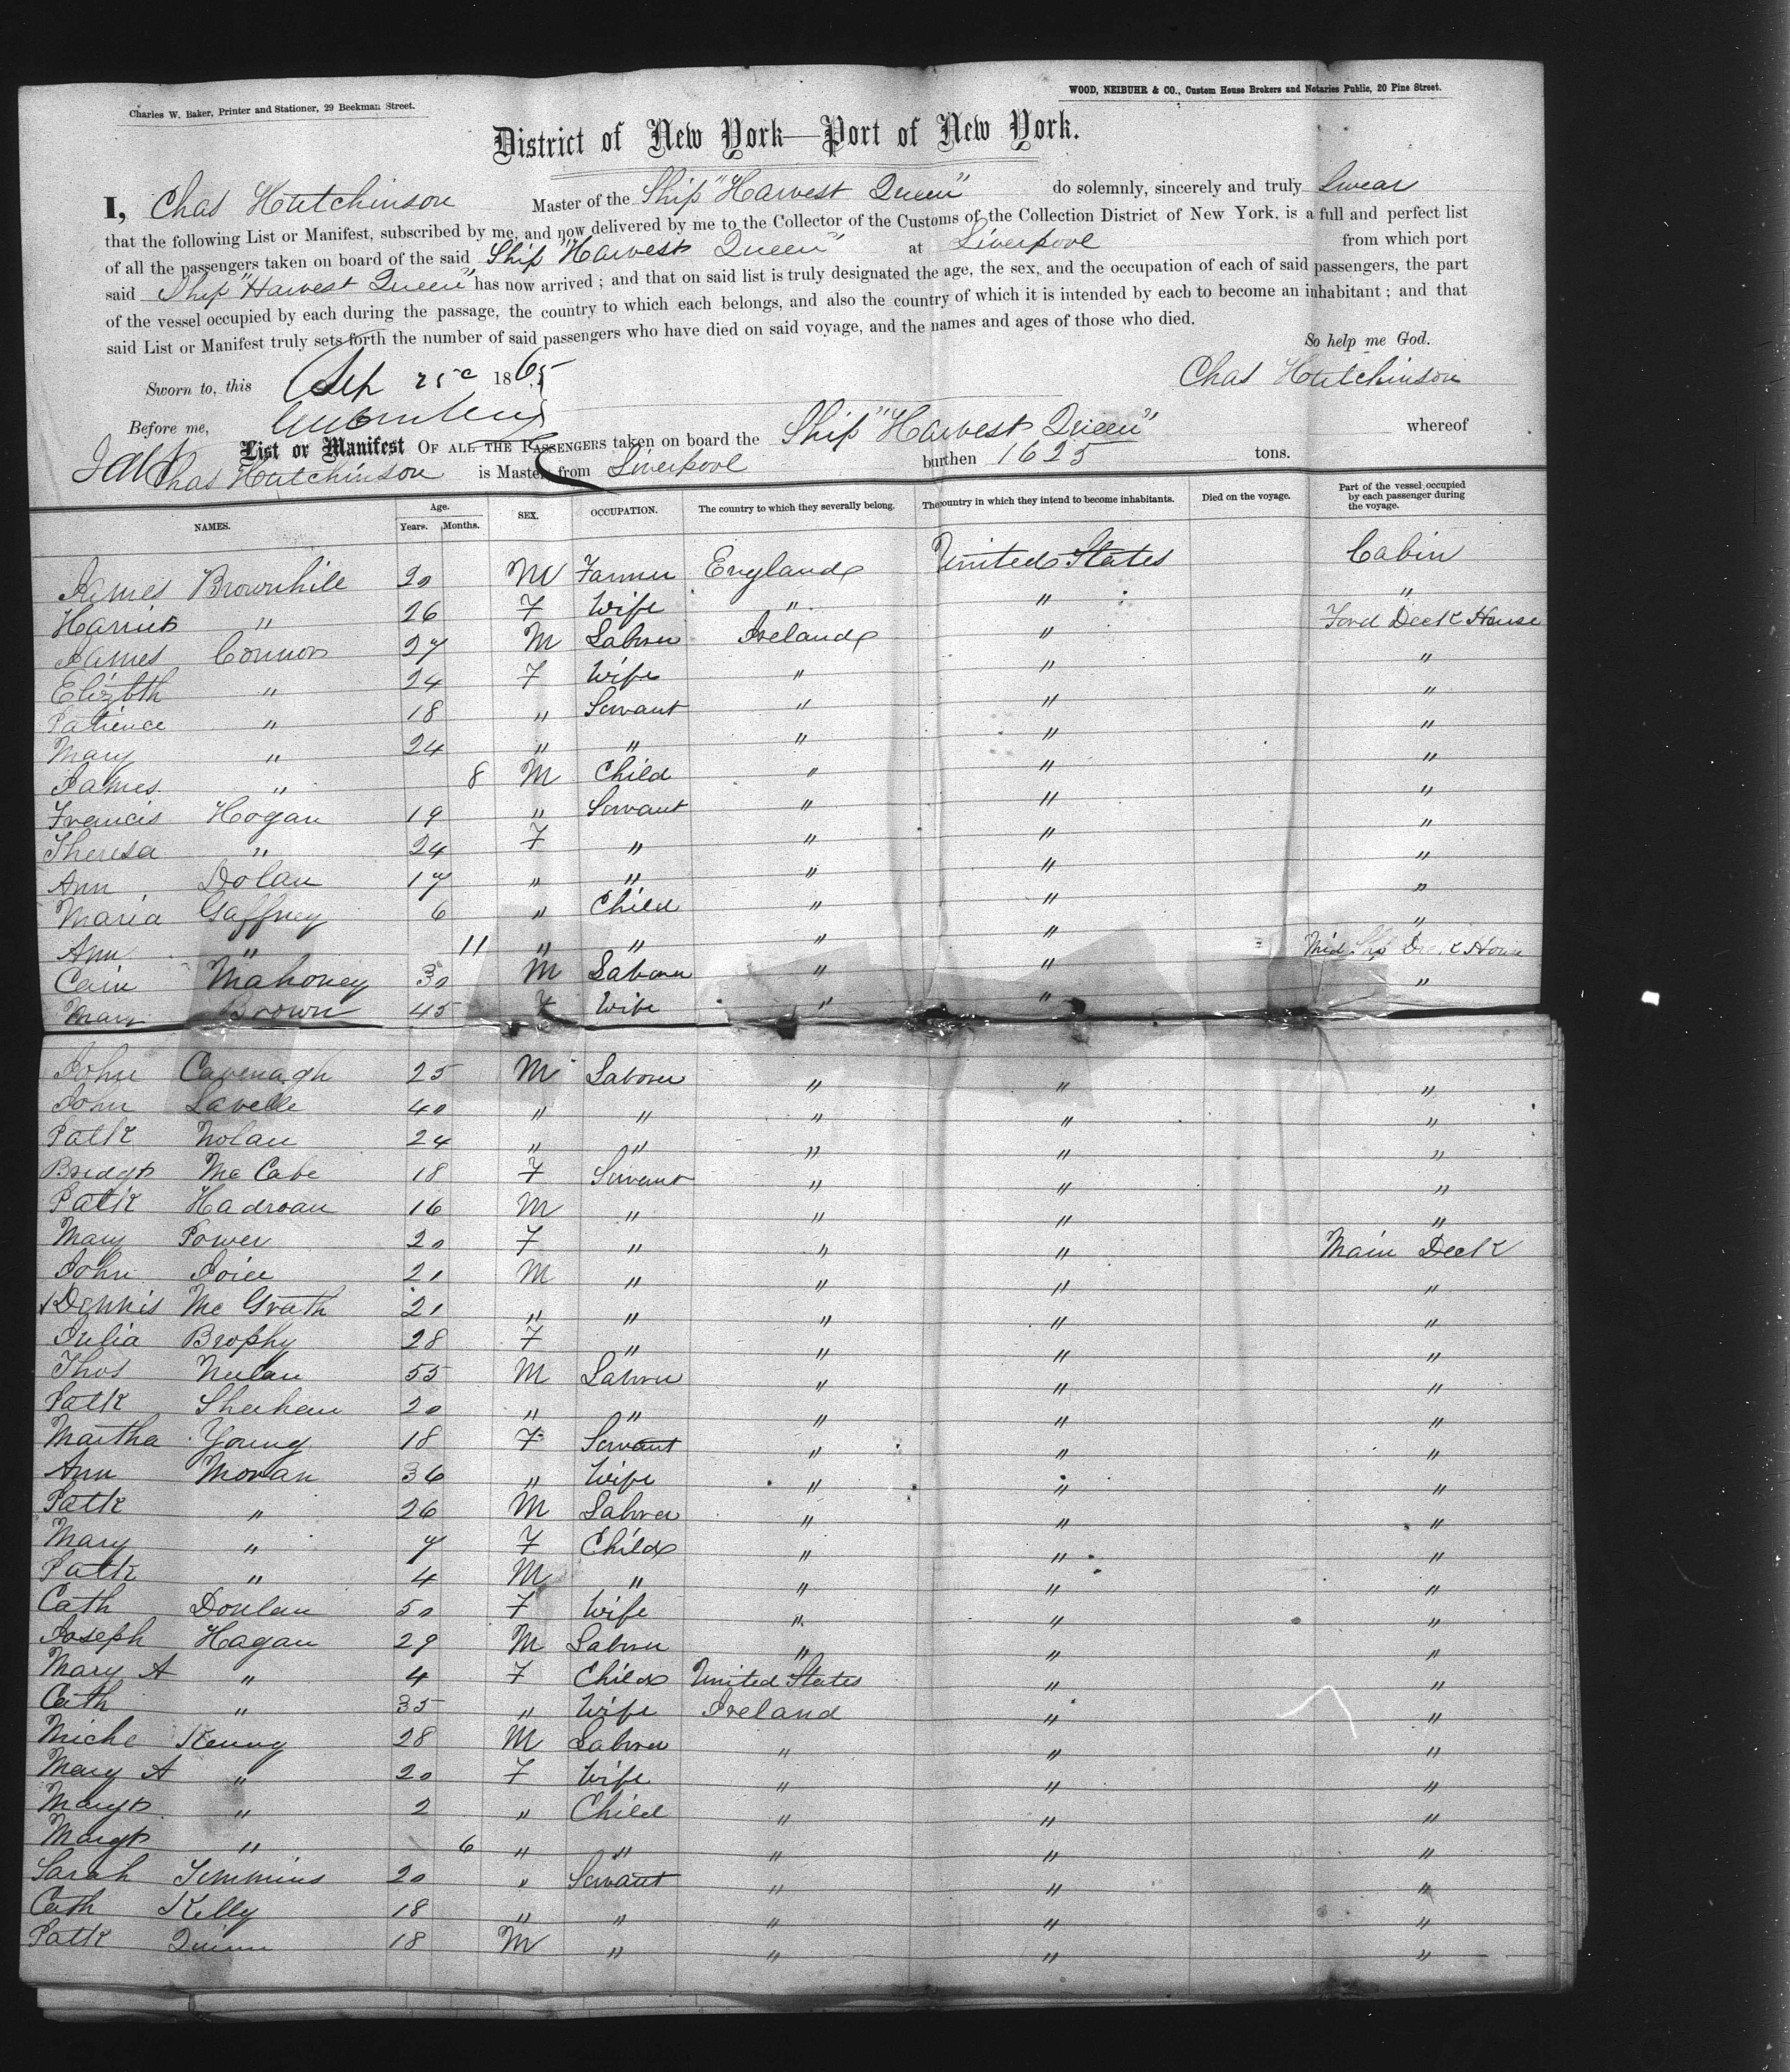 Charles W. Baker, Printer and Stationer, 29 Beekman Street.
WOOD, NEIBUHR & CO., Custom House Brokers and Notaries Public, 20 Pine Street.
District of New York—Port of New York.
I, Chas Hutchinson Master of the Ship "Harvest Queen" do solemnly, sincerely and truly Swear
that the following List or Manifest, subscribed by me, and now delivered by me to the Collector of the Customs of the Collection District of New York, is a full and perfect list
of all the passengers taken on board of the said Ship "Harvest Queen" at Liverpool from which port
said Ship "Harvest Queen" has now arrived; and that on said list is truly designated the age, the sex, and the occupation of each of said passengers, the part
of the vessel occupied by each during the passage, the country to which each belongs, and also the country of which it is intended by each to become an inhabitant; and that
said List or Manifest truly sets forth the number of said passengers who have died on said voyage, and the names and ages of those who died.
So help me God.
Sworn to, this Sep 25 1865 Chas Hutchinson
Before me,
List or Manifest OF ALL THE PASSENGERS taken on board the Ship "Harvest Queen" whereof
Chas Hutchinson is Master, from Liverpool burthen 1625 tons.
NAMES. Age. Years. Months. SEX. OCCUPATION. The country to which they severally belong. The country in which they intend to become inhabitants. Died on the voyage. Part of the vessel occupied by each passenger during the voyage.
James Brownhill 30 M Farmer England United States Cabin
Harriet " 26 F Wife " " "
James Connor 27 M Laborer Ireland " Ford Deck House
Elizbth " 24 F Wife " " "
Patience " 18 " Servant " " "
Mary " 24 " " " " "
James " 8 M Child " " "
Francis Hogan 19 " Servant " " "
Theresa " 24 F " " " "
Ann Dolan 17 " " " " "
Maria Gaffney 6 " Child " " "
Ann " 11 " " " " "
Cain Mahoney 30 M Laborer " " Mid Shp Deck House
Mary Brown 45 F Wife " " "
John Cavenagh 25 M Laborer " " "
John Lavelle 40 " " " " "
Patk Nolan 24 " " " " "
Bridgt McCabe 18 F Servant " " "
Patk Hadroan 16 M " " " "
Mary Power 20 F " " " Main Deck
John Joice 21 M " " " "
Dennis McGrath 21 " " " " "
Julia Brophy 28 F " " " "
Thos Neulan 55 M Laborer " " "
Patk Sheehan 20 " " " " "
Martha Young 18 F Servant " " "
Ann Moran 36 " Wife " " "
Patk " 26 M Laborer " " "
Mary " 7 F Child " " "
Patk " 4 M " " " "
Cath Donlan 50 F Wife " " "
Joseph Hagan 29 M Laborer " " "
Mary A " 4 F Child United States " "
Cath " 35 " Wife Ireland " "
Miche Kenny 28 M Laborer " " "
Mary A " 20 F Wife " " "
Margt " 2 " Child " " "
Margt " 6 " " " " "
Sarah Timmins 20 " Servant " " "
Cath Kelly 18 " " " " "
Patk Quinn 18 M " " " "